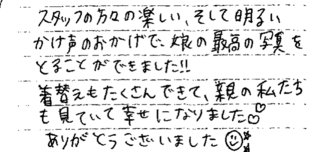 スタッフの方々の楽しい、そして明るい
かけ声のおかげで、娘の最高の写真を
とることができました!!
着替えもたくさんできて、親の私たち
も見ていて幸せになりました♡♡
ありがとうございました☺